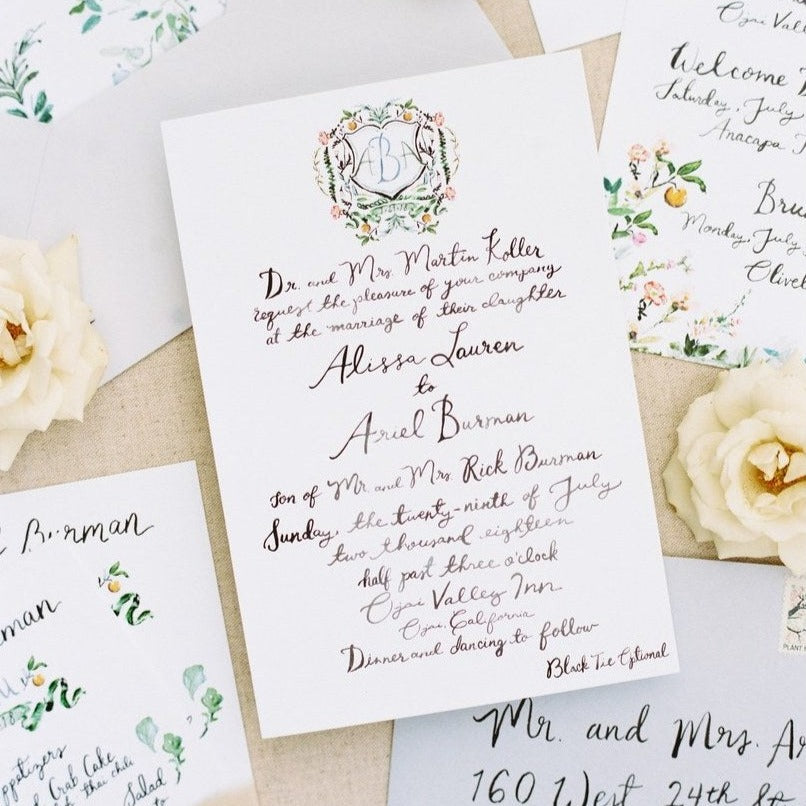 ABA
Dr. and Mrs. Martin Koller
request the pleasure of your company
at the marriage of their daughter
Alissa Lauren
to
Ariel Burman
Son of Mr. and Mrs. Rick Burman
Sunday, the twenty-ninth of July
two thousand eighteen
half past three o'clock
Ojai Valley Inn
Ojai, California
Dinner and dancing to follow
Black Tie Optional
Ojai
Welcome
Saturday, July
Anacapa
Monday, July
Burman
Crab Cake
thai chili
Salad
to
Mr. and Mrs.
160 West 24th St
PLANT